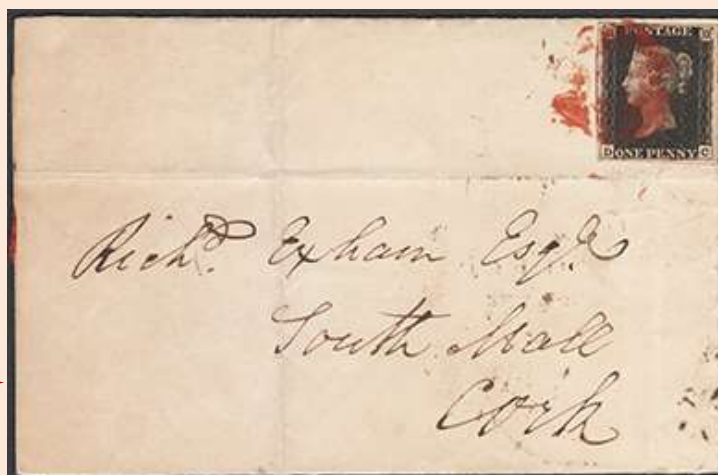 POSTAGE
D ONE PENNY C
Richd. Exham Esqre
South Mall
Cork